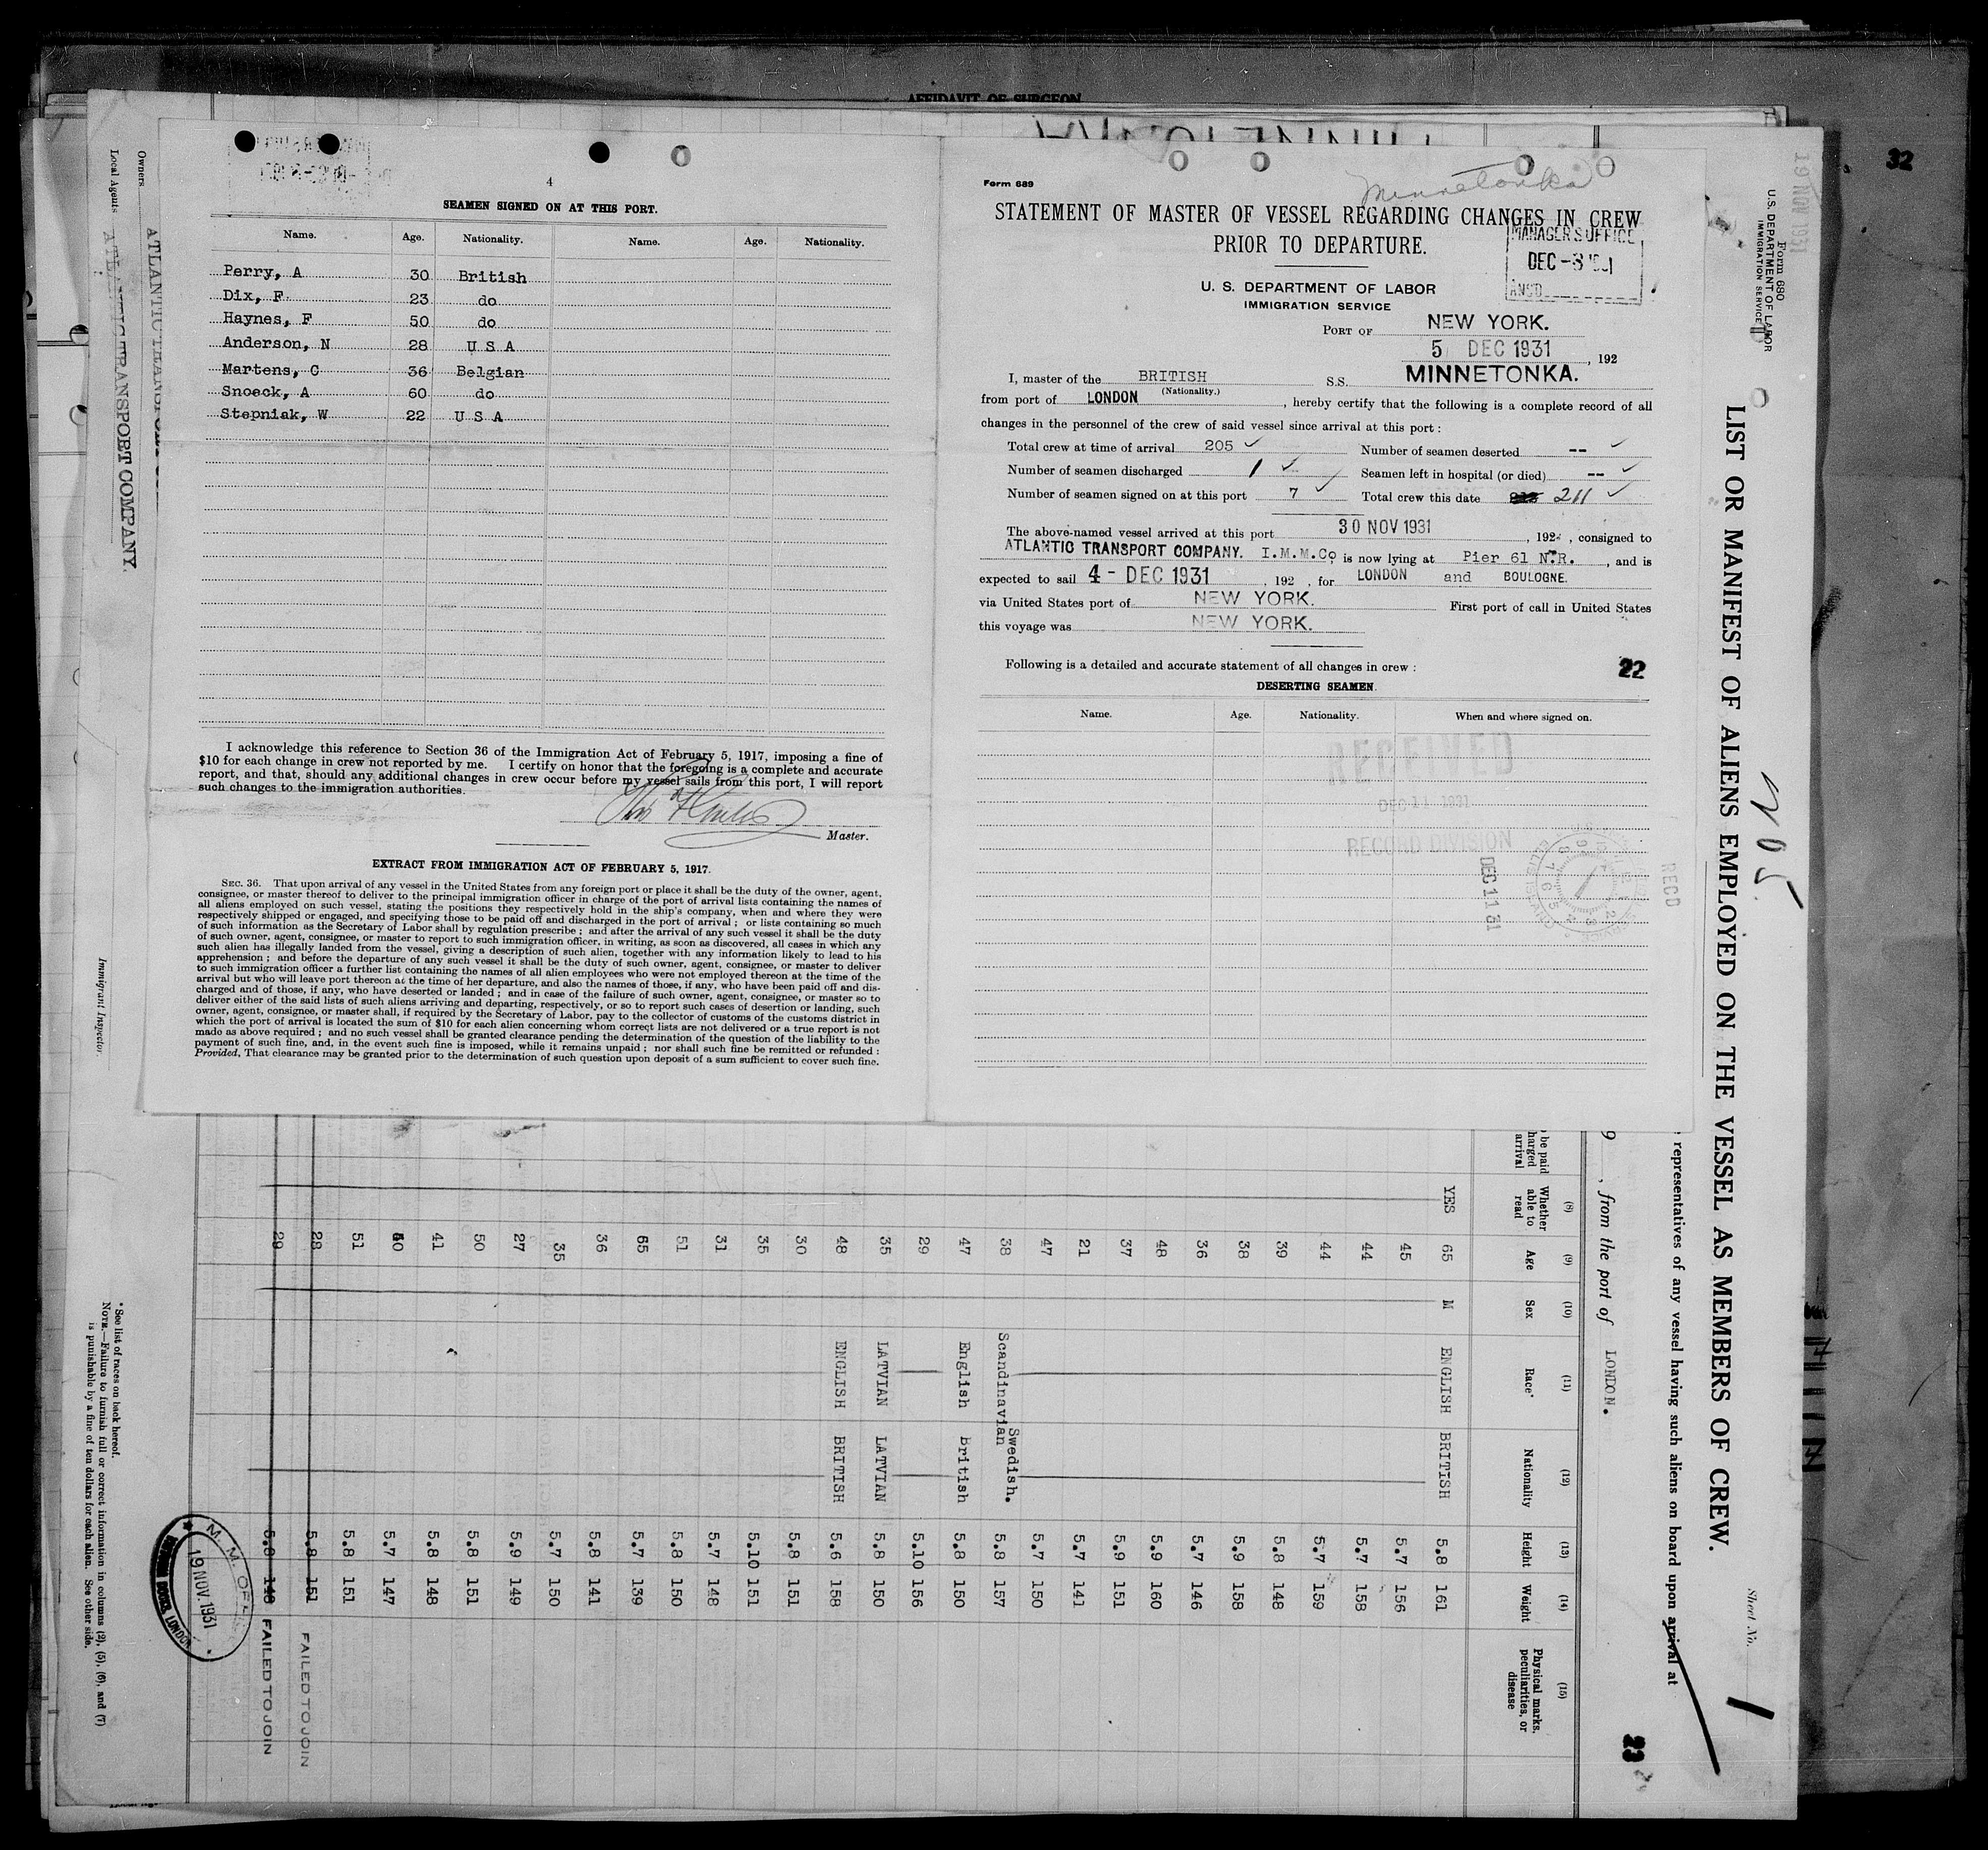 AFFIDAVIT OF SURGEON
32
4
SEAMEN SIGNED ON AT THIS PORT.
Name. Age. Nationality. Name. Age. Nationality.
Perry, A 30 British
Dix, F 23 do
Haynes, F 50 do
Anderson, N 28 U S A
Martens, C 36 Belgian
Snoeck, A 60 do
Stepniak, W 22 U S A
I acknowledge this reference to Section 36 of the Immigration Act of February 5, 1917, imposing a fine of
$10 for each change in crew not reported by me. I certify on honor that the foregoing is a complete and accurate
report, and that, should any additional changes in crew occur before my vessel sails from this port, I will report
such changes to the immigration authorities.
Master.
EXTRACT FROM IMMIGRATION ACT OF FEBRUARY 5, 1917.
SEC. 36. That upon arrival of any vessel in the United States from any foreign port or place it shall be the duty of the owner, agent,
consignee, or master thereof to deliver to the principal immigration officer in charge of the port of arrival lists containing the names of
all aliens employed on such vessel, stating the positions they respectively hold in the ship's company, when and where they were
respectively shipped or engaged, and specifying those to be paid off and discharged in the port of arrival; or lists containing so much
of such information as the Secretary of Labor shall by regulation prescribe; and after the arrival of any such vessel it shall be the duty
of such owner, agent, consignee, or master to report to such immigration officer, in writing, as soon as discovered, all cases in which any
such alien has illegally landed from the vessel, giving a description of such alien, together with any information likely to lead to his
apprehension; and before the departure of any such vessel it shall be the duty of such owner, agent, consignee, or master to deliver
to such immigration officer a further list containing the names of all alien employees who were not employed thereon at the time of the
arrival but who will leave port thereon at the time of her departure, and also the names of those, if any, who have been paid off and dis-
charged and of those, if any, who have deserted or landed; and in case of the failure of such owner, agent, consignee, or master so to
deliver either of the said lists of such aliens arriving and departing, respectively, or so to report such cases of desertion or landing, such
owner, agent, consignee, or master shall, if required by the Secretary of Labor, pay to the collector of customs of the customs district in
which the port of arrival is located the sum of $10 for each alien concerning whom correct lists are not delivered or a true report is not
made as above required; and no such vessel shall be granted clearance pending the determination of the question of the liability to the
payment of such fine, and, in the event such fine is imposed, while it remains unpaid; nor shall such fine be remitted or refunded:
Provided, That clearance may be granted prior to the determination of such question upon deposit of a sum sufficient to cover such fine.
Form 689
Minnetonka
STATEMENT OF MASTER OF VESSEL REGARDING CHANGES IN CREW
PRIOR TO DEPARTURE.
MANAGER'S OFFICE
DEC -3 1931
ANS'D
U. S. DEPARTMENT OF LABOR
IMMIGRATION SERVICE
PORT OF NEW YORK.
5 DEC 1931, 192
I, master of the BRITISH S.S. MINNETONKA.
(Nationality.)
from port of LONDON, hereby certify that the following is a complete record of all
changes in the personnel of the crew of said vessel since arrival at this port:
Total crew at time of arrival 205 ✓ Number of seamen deserted -- ✓
Number of seamen discharged 1 ✓ Seamen left in hospital (or died) -- ✓
Number of seamen signed on at this port 7 ✓ Total crew this date 211 ✓
The above-named vessel arrived at this port 30 NOV 1931, 192 , consigned to
ATLANTIC TRANSPORT COMPANY. I.M.M.Co, is now lying at Pier 61 N.R., and is
expected to sail 4 - DEC 1931, 192 , for LONDON and BOULOGNE.
via United States port of NEW YORK. First port of call in United States
this voyage was NEW YORK.
Following is a detailed and accurate statement of all changes in crew:
22
DESERTING SEAMEN.
Name. Age. Nationality. When and where signed on.
RECEIVED
DEC 11 1931
RECORD DIVISION
DEC 11 31
RECD
19 NOV 1931
Form 680
U.S. DEPARTMENT OF LABOR
IMMIGRATION SERVICE
LIST OR MANIFEST OF ALIENS EMPLOYED ON THE VESSEL AS MEMBERS OF CREW.
205.
Sheet No. 1
representatives of any vessel having such aliens on board upon arrival at
9 , from the port of LONDON.
23
be paid
harged
arrival
(8) Whether able to read
(9) Age
(10) Sex
(11) Race*
(12) Nationality
(13) Height
(14) Weight
(15) Physical marks, peculiarities, or disease
YES 65 M ENGLISH BRITISH 5.8 161
45 5.7 156
44 5.7 158
44 5.7 159
39 5.8 148
38 5.9 158
36 5.7 146
48 5.9 160
37 5.9 151
21 5.7 141
47 5.7 150
38 Scandinavian Swedish. 5.8 157
47 English British 5.8 150
29 5.10 156
35 LATVIAN LATVIAN 5.8 150
48 ENGLISH BRITISH 5.6 158
30 5.8 151
35 5.10 151
31 5.7 148
51 5.8 150
65 5.7 139
36 5.8 141
35 5.7 150
27 5.9 149
50 5.8 151
41 5.8 148
40 5.7 147
51 5.8 151
28 5.8 151 FAILED TO JOIN
29 5.8 148 FAILED TO JOIN
19 NOV. 1931
Owners ATLANTIC TRANSPORT
Local Agents ATLANTIC TRANSPORT COMPANY.
Immigrant Inspector.
* See list of races on back hereof.
NOTE.—Failure to furnish full or correct information in columns (2), (5), (6), and (7)
is punishable by a fine of ten dollars for each alien. See other side.